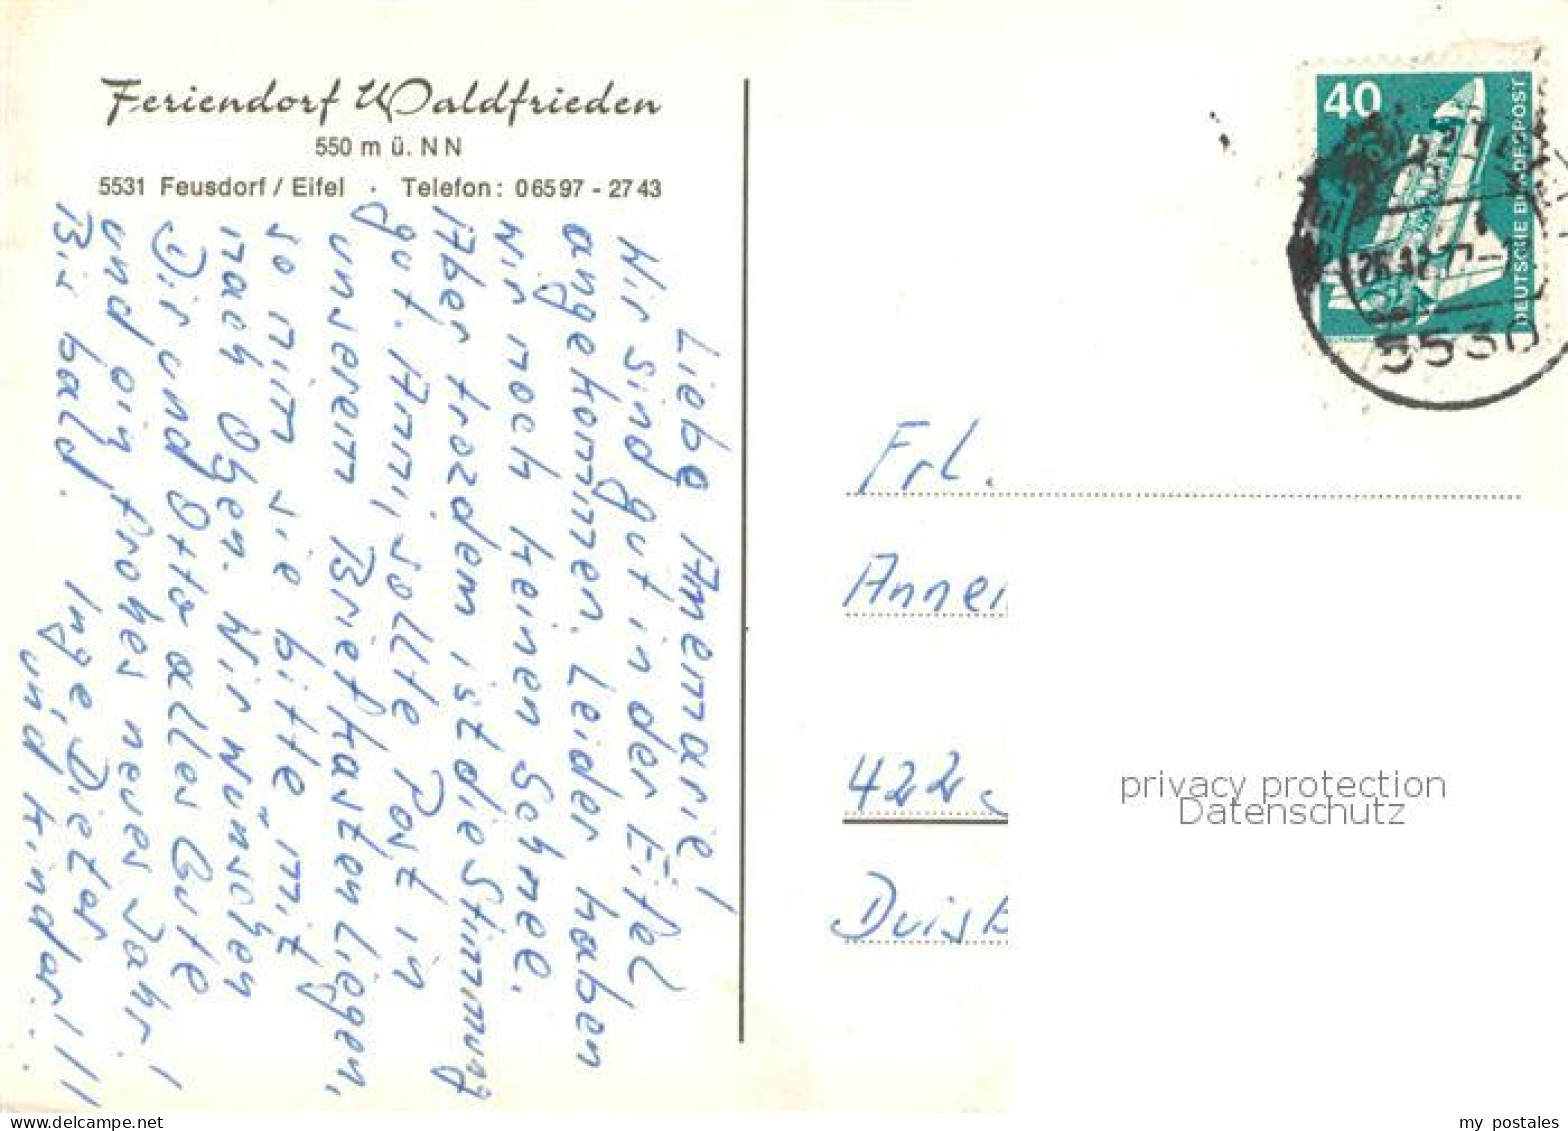 Feriendorf Waldfrieden
550 m ü. NN
5531 Feusdorf / Eifel · Telefon: 06597 - 2743
Liebe Anemarie!
Wir sind gut in der Eifel
angekommen. Leider haben
wir noch keinen Schnee.
Aber trozdem ist die Stimmung
gut. Anni, sollte Post in
unserem Briefkasten liegen,
so nim sie bitte mit
nach Oben. Wir wünschen
Dir und Otto alles Gute
und ein frohes neues Jahr!
Bis bald. Inge, Dieter
und Kinder!!!
40
DEUTSCHE BUNDESPOST
5530
Frl.
Annei
422
Duisb
privacy protection
Datenschutz
my postales